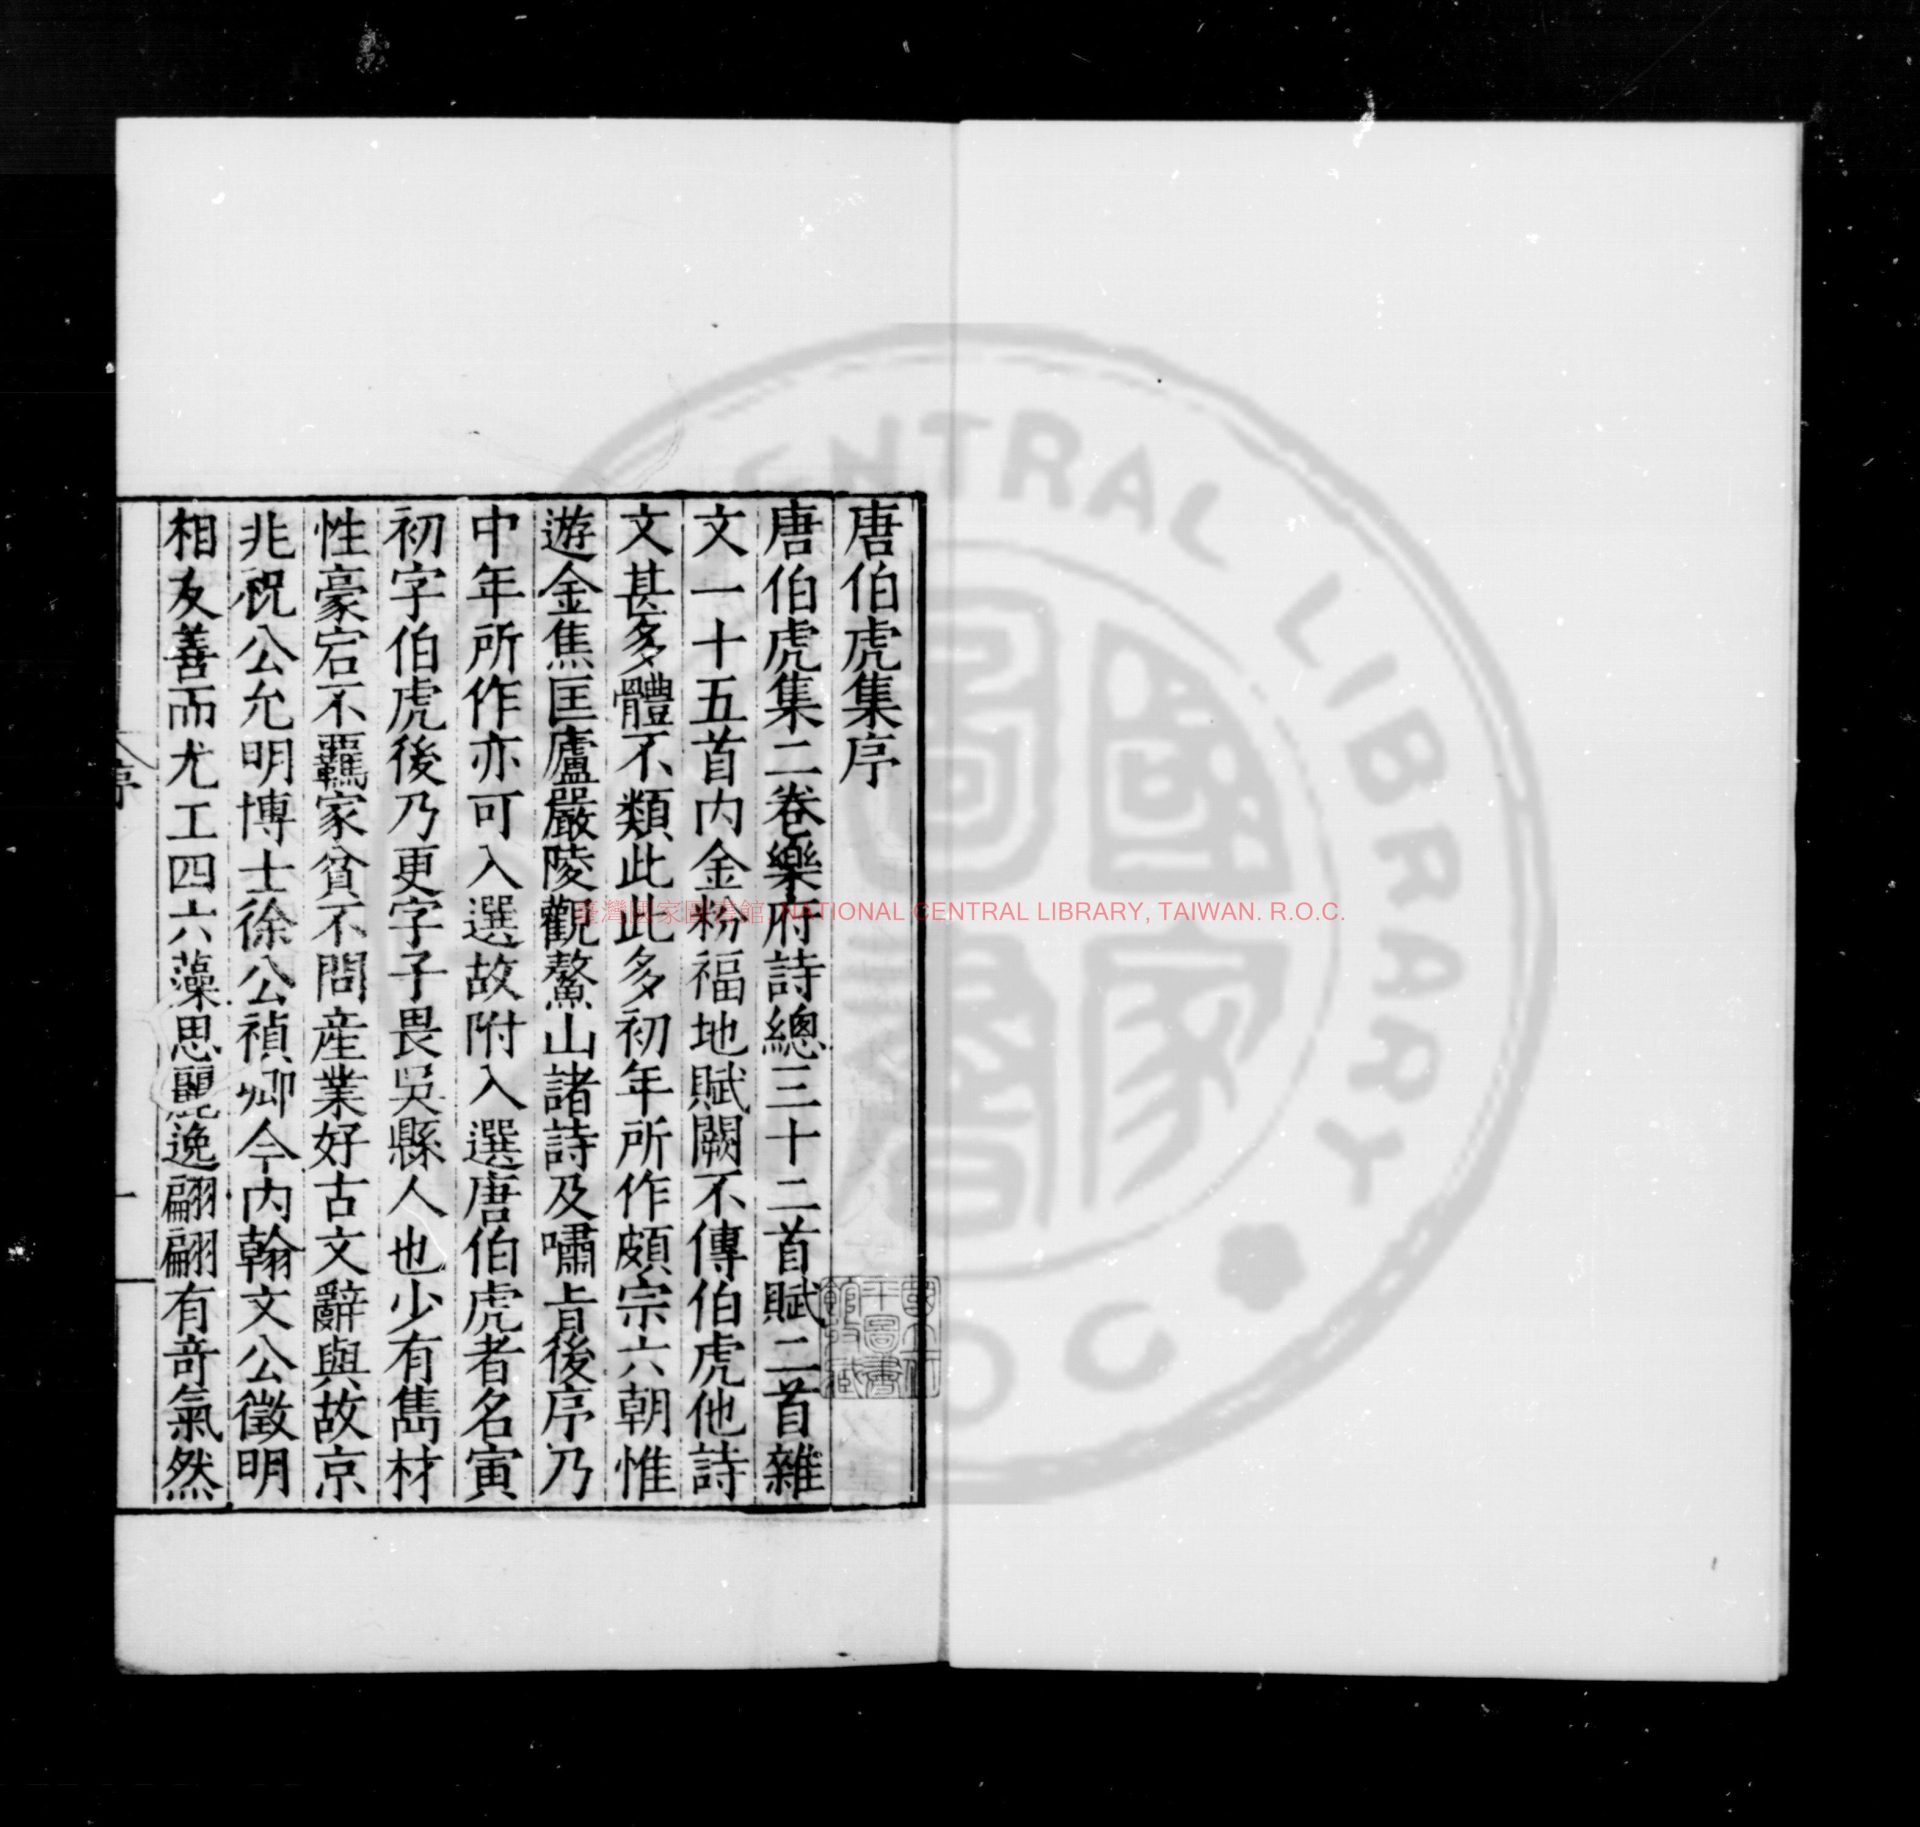 唐伯虎集序
唐伯虎集二卷樂府詩總三十二首賦二首雜
文一十五首内金粉福地賦闕不傳伯虎他詩
文甚多體不類此此多初年所作頗宗六朝惟
遊金焦匡廬嚴陵觀鰲山諸詩及嘯旨後序乃
中年所作亦可入選故附入選唐伯虎者名寅
初字伯虎後乃更字子畏吳縣人也少有雋材
性豪宕不羈家貧不問産業好古文辭與故京
兆祝公允明博士徐公禎卿今内翰文公徵明
相友善而尤工四六藻思麗逸翩翩有奇氣然
序
一
國立北
平圖書
館收藏
臺灣國家圖書館, NATIONAL CENTRAL LIBRARY, TAIWAN. R.O.C.
國家圖書
CENTRAL LIBRARY